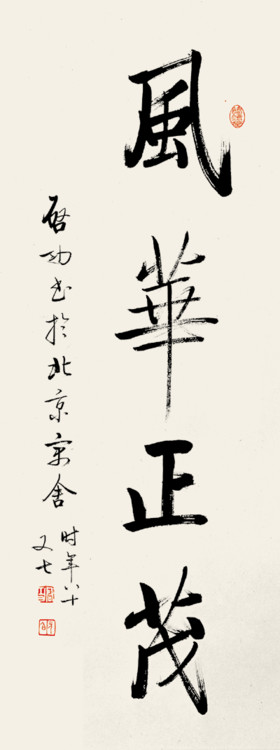 風華正茂
启功书於北京寓舍
时年八十
又七